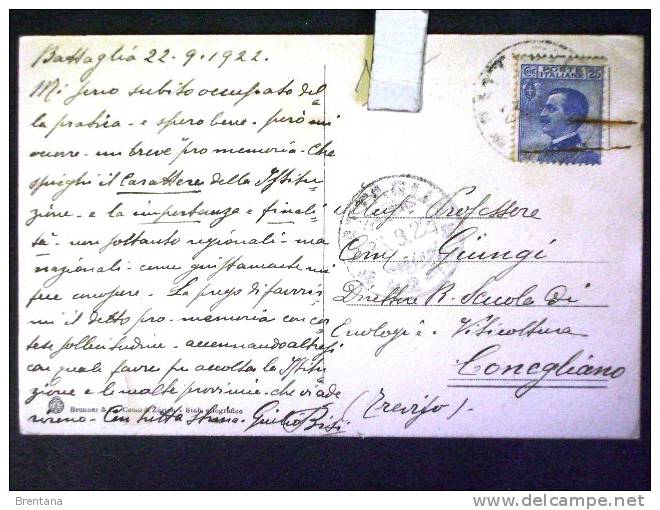 Battaglia 22.9.1922.
Mi sono subito occupato del-
la pratica - e spero bene - però mi
occorre - un breve "pro memoria - che
spieghi il Carattere della Istitu-
zione - e la importanza e finali-
tà - non soltanto regionali - ma
nazionali - come giustamente mi
fece
La prego di favorir-
mi il detto pro-memoria con cor-
tese sollecitudine - accennandoaltresì
con quale favore fu accolta la Istitu-
zione e le molte provincie - che vi ade-
rirono - Con tutta stima - Giulio Bisi
Brunner & C. Como & Zürich - Stab. eliografico
POSTE
ITALIANE
Cent. 25
Professore
Giungi
Direttore R. Scuola di
Enologi e - Viticoltura
Conegliano
(Treviso).
Brentana
delcampe.net